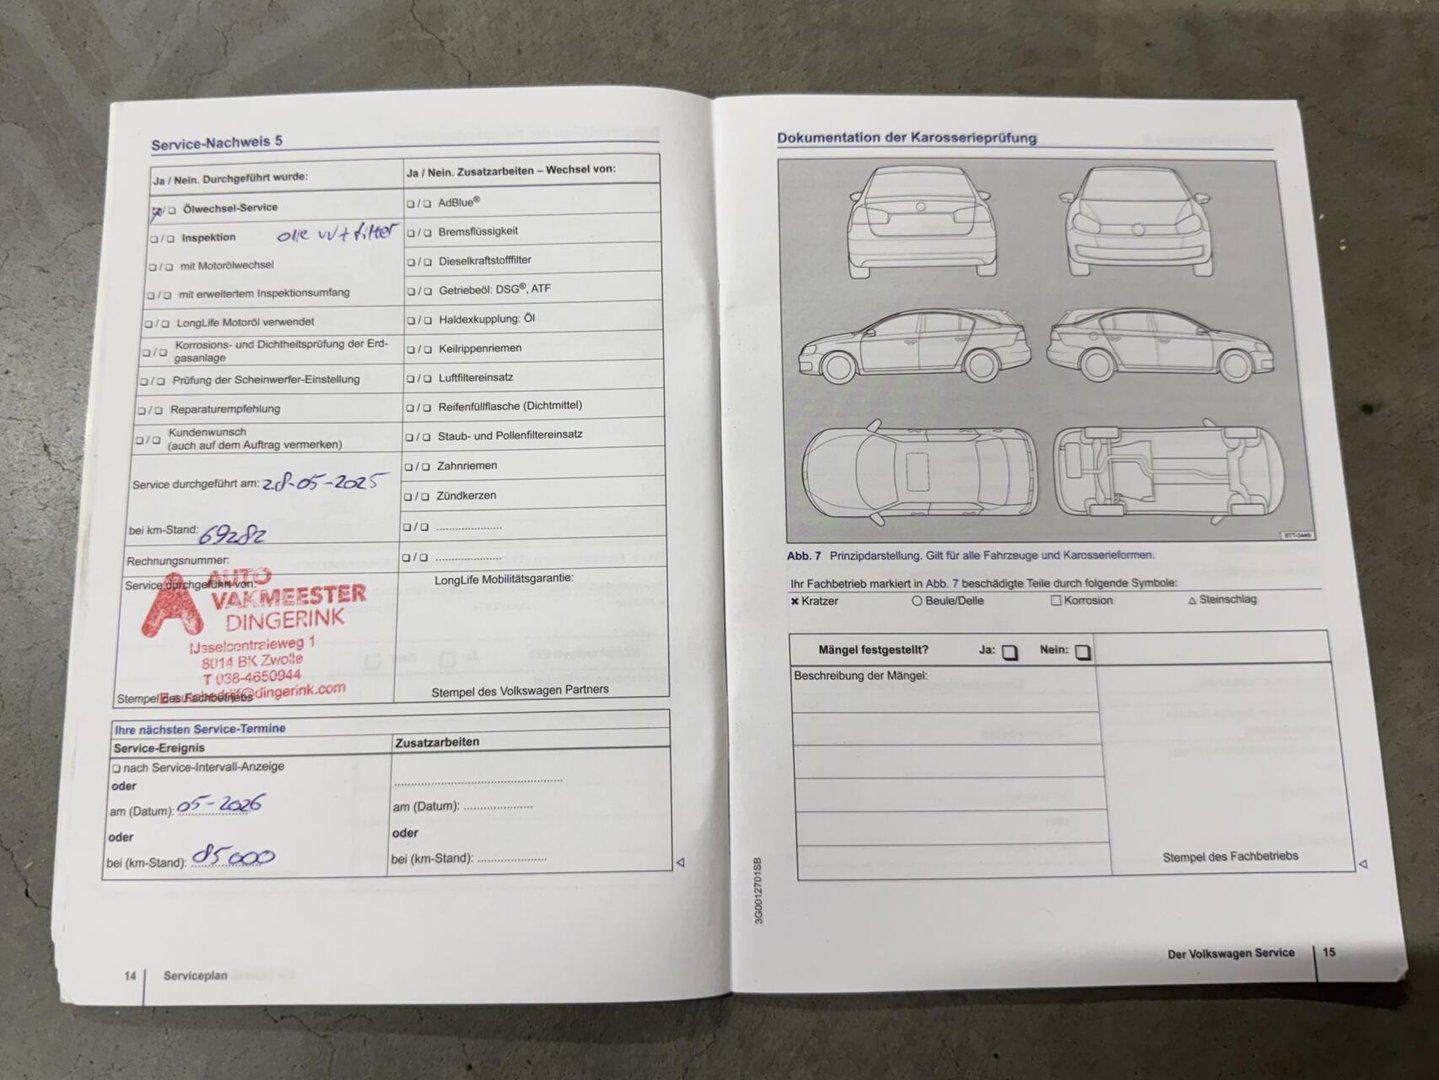 Service-Nachweis 5
Ja / Nein. Durchgeführt wurde:
☒/❑ Ölwechsel-Service
❑/❑ Inspektion olie vv + filter
❑/❑ mit Motorölwechsel
❑/❑ mit erweitertem Inspektionsumfang
❑/❑ LongLife Motoröl verwendet
❑/❑ Korrosions- und Dichtheitsprüfung der Erd-
gasanlage
❑/❑ Prüfung der Scheinwerfer-Einstellung
❑/❑ Reparaturempfehlung
❑/❑ Kundenwunsch
(auch auf dem Auftrag vermerken)
Service durchgeführt am: 28-05-2025
bei km-Stand: 69282
Rechnungsnummer:
Service durchgeführt von:
AUTO
VAKMEESTER
DINGERINK
IJsselcentraleweg 1
8014 BK Zwolle
T 038-4650944
@dingerink.com
Stempel des Fachbetriebs
Ja / Nein. Zusatzarbeiten – Wechsel von:
❑/❑ AdBlue®
❑/❑ Bremsflüssigkeit
❑/❑ Dieselkraftstofffilter
❑/❑ Getriebeöl: DSG®, ATF
❑/❑ Haldexkupplung: Öl
❑/❑ Keilrippenriemen
❑/❑ Luftfiltereinsatz
❑/❑ Reifenfüllflasche (Dichtmittel)
❑/❑ Staub- und Pollenfiltereinsatz
❑/❑ Zahnriemen
❑/❑ Zündkerzen
❑/❑ ......................
❑/❑ ......................
LongLife Mobilitätsgarantie:
Stempel des Volkswagen Partners
Ihre nächsten Service-Termine
Service-Ereignis
❑ nach Service-Intervall-Anzeige
oder
am (Datum): 05-2026
oder
bei (km-Stand): 85000
Zusatzarbeiten
......................................................
am (Datum): ......................
oder
bei (km-Stand): ......................
14 Serviceplan
Dokumentation der Karosserieprüfung
Abb. 7 Prinzipdarstellung. Gilt für alle Fahrzeuge und Karosserieformen.
Ihr Fachbetrieb markiert in Abb. 7 beschädigte Teile durch folgende Symbole:
✖ Kratzer ○ Beule/Delle □ Korrosion △ Steinschlag
Mängel festgestellt? Ja: ❑ Nein: ❑
Beschreibung der Mängel:
Stempel des Fachbetriebs
3G0012701SB
Der Volkswagen Service 15